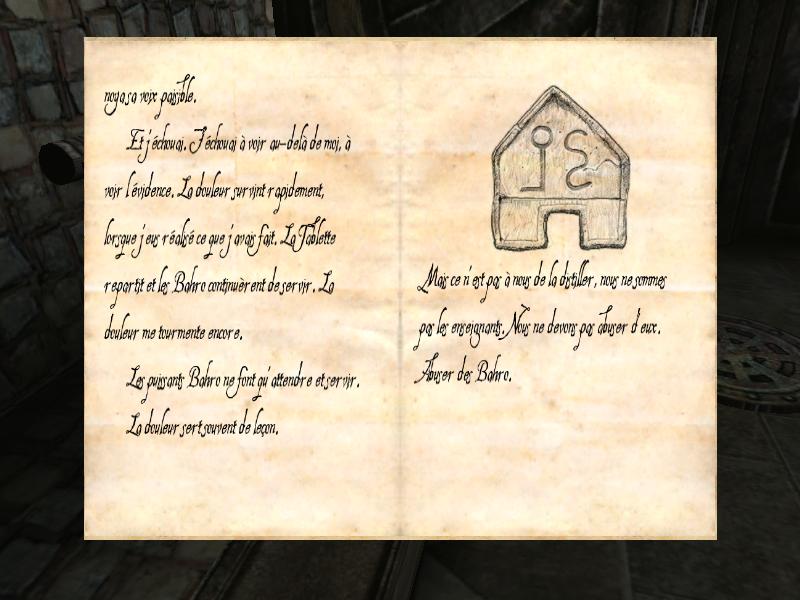 noya sa voix paisible.
Et j'échouai. J'échouai à voir au-delà de moi, à
voir l'évidence. La douleur survint rapidement,
lorsque j'eus réalisé ce que j'avais fait. La Tablette
repartit et les Bahro continuèrent de servir. La
douleur me tourmente encore.
Les puissants Bahro ne font qu'attendre et servir.
La douleur sert souvent de leçon.
Mais ce n'est pas à nous de la distiller, nous ne sommes
pas les enseignants. Nous ne devons pas abuser d'eux.
Abuser des Bahro.